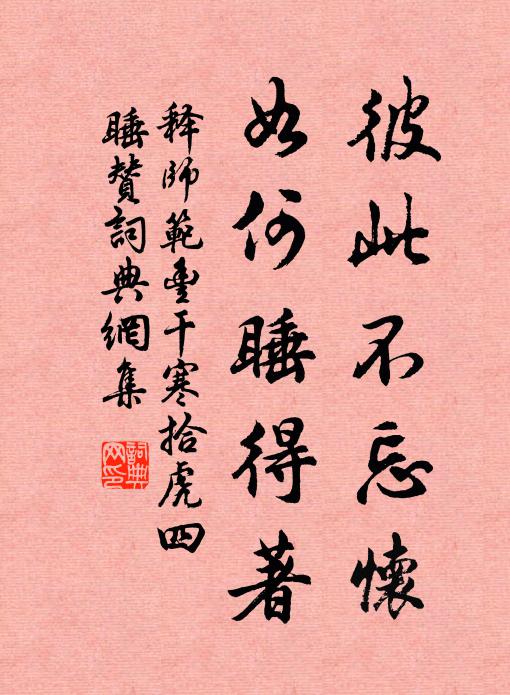 彼此不忘懷
如何睡得著
釋師範豐干寒拾虎四
睡贊詞典網集
詞典网印